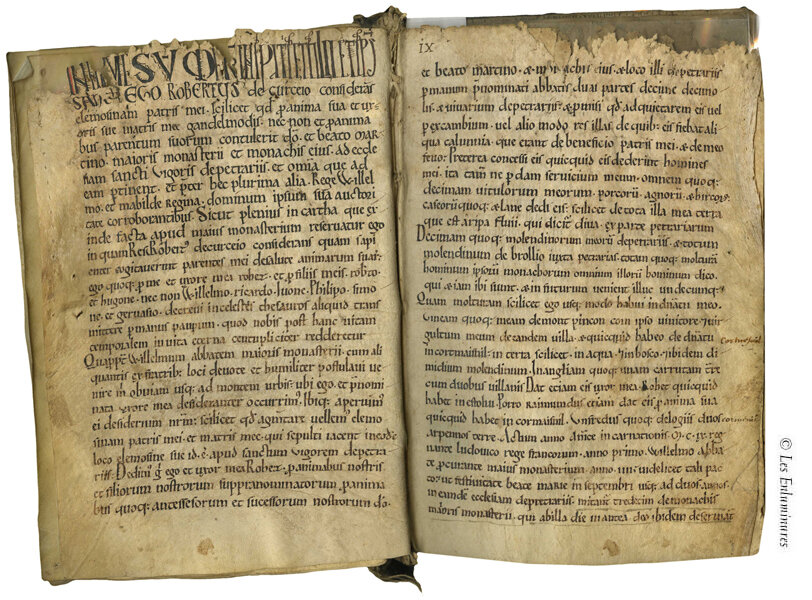 EGO ROBERTUS de curceio considerás
elemosinam patris mei. scilicet qđ p anima sua et ux
oris sue matris mee gandelmodis. nec non et p anima
bus parentum suorum contulerit dō. et beato mar
tino. maioris monasterii et monachis eius. ad eccle
siam sancti vigoris depetrariis. et omnia que ad
eam ptinent. et peter hec plurima alia. Rege Willel
mo. et mabilde regina. dominum ipsum sua auctori
tate corroborantibus. Sicut plenius in cartha que ex
inde facta apud maius monasterium reseruatur ego
inquam Rex Robert' decurceio considerans quam sapi
enter cogitauerint parentes mei desalute animarum suarᵘ
ego quoq; p me et uxore mea robert. et p filiis meis. robto.
et hugone. nec non Willelmo. ricardo. iuone. Philipo. simo
ne. et geruasio. decreui incelestes thesauros aliquid trans
mittere p manus paupum. quod nobis post hanc uitam
temporalem in uita eterna centupliciter redderetur
Quappt Willelmum abbatem maioris monasterii. cum ali
quantis ex fratribꝰ loci deuote et humiliter postulaui ue
nire in obuiam usq; ad montem urbis. ubi ego. et pnomi
nata uxore mea desideranter occurrim'. Ibiq; aperuim'
ei desiderium nrm. scilicet qđ augmtare vellem' elemo
sinam patris mei. et matris mee. qui sepulti iacent in eodē
loco elemosine sue id. ē. apud sanctum vigorem depetra
riis. Dedim' g ego et uxor mea Robert. p animabus nostris
et filiorum nostrorum suppranominatorum. p anima
bus quoq; ancessesorum et sucessorum nostrorum dō.
IX
et beato martino. & monachis eius. & loco illi depetrariis
p manum pnominati abbatis duas partes decime decimo
lis. & uiuarium depetrariis. & pmisi qđ adquietarem eis uel
p excambium. uel alio modo res illas. de quib; eis fiebat ali
qua calumnia. que erant de beneficio patris mei. & de meo
feuo. Preterea concessi eis quicquid eis dederint homines
mei. ita tam̄ ne pdam seruicium meum. omnem quoq;
decimam uitulorum meorum. porcorū. agnorū. & hircorū.
caseorū quoq; & lane dedi eis. scilicet de tota illa mea terra
que est aripa fluuii. qui dicit' diua. ex parte petrariarum
Decimam quoq; molendinorum meorū depetrariis. & totum
molendinum de brollio iuxta petrarias. totam quoq; molturā
hominum ipsorū monachorum omnium illorū hominum dico.
qui & iam ibi sunt. & in futurum uenient illuc undecunq;
Quam molturam scilicet ego usq; modo habui in ducatu meo.
Omnem quoq; meam de mont pincon cum ipso uiuiore. Vir
gultum meum derandem uilla. & quicquid habeo de ducatu
in cormaisnil. in terra scilicet. in aqua. in bosco. & ibidem di
midium molendinum. In anglia quoq; unam carrutam trē
cum duobus uillanis. Dat etiam eis uxor mea Robert quicquid
habet in estollio. Porro Raimundus etiam dat eis p anima sua
quicquid habet in cormaisnil. Unfredus quoq; delogiis duos
arpennos terre. Actum anno dn̄ice incarnationis. M. c. ix. reg
nante ludouico rege francorum. anno primo. Willelmo abba
te. pcurante maius monasterium. anno. iiii. uidelicet tali pac
to. ut festiuitate beate marie in septembri usq; ad duos annos.
in eandē ecclesiam depetrariis. mittant' tredecim de monachis
maioris monasterii. qui ab illa die in antea deo ibidem deseruiāt
© Les Enluminures